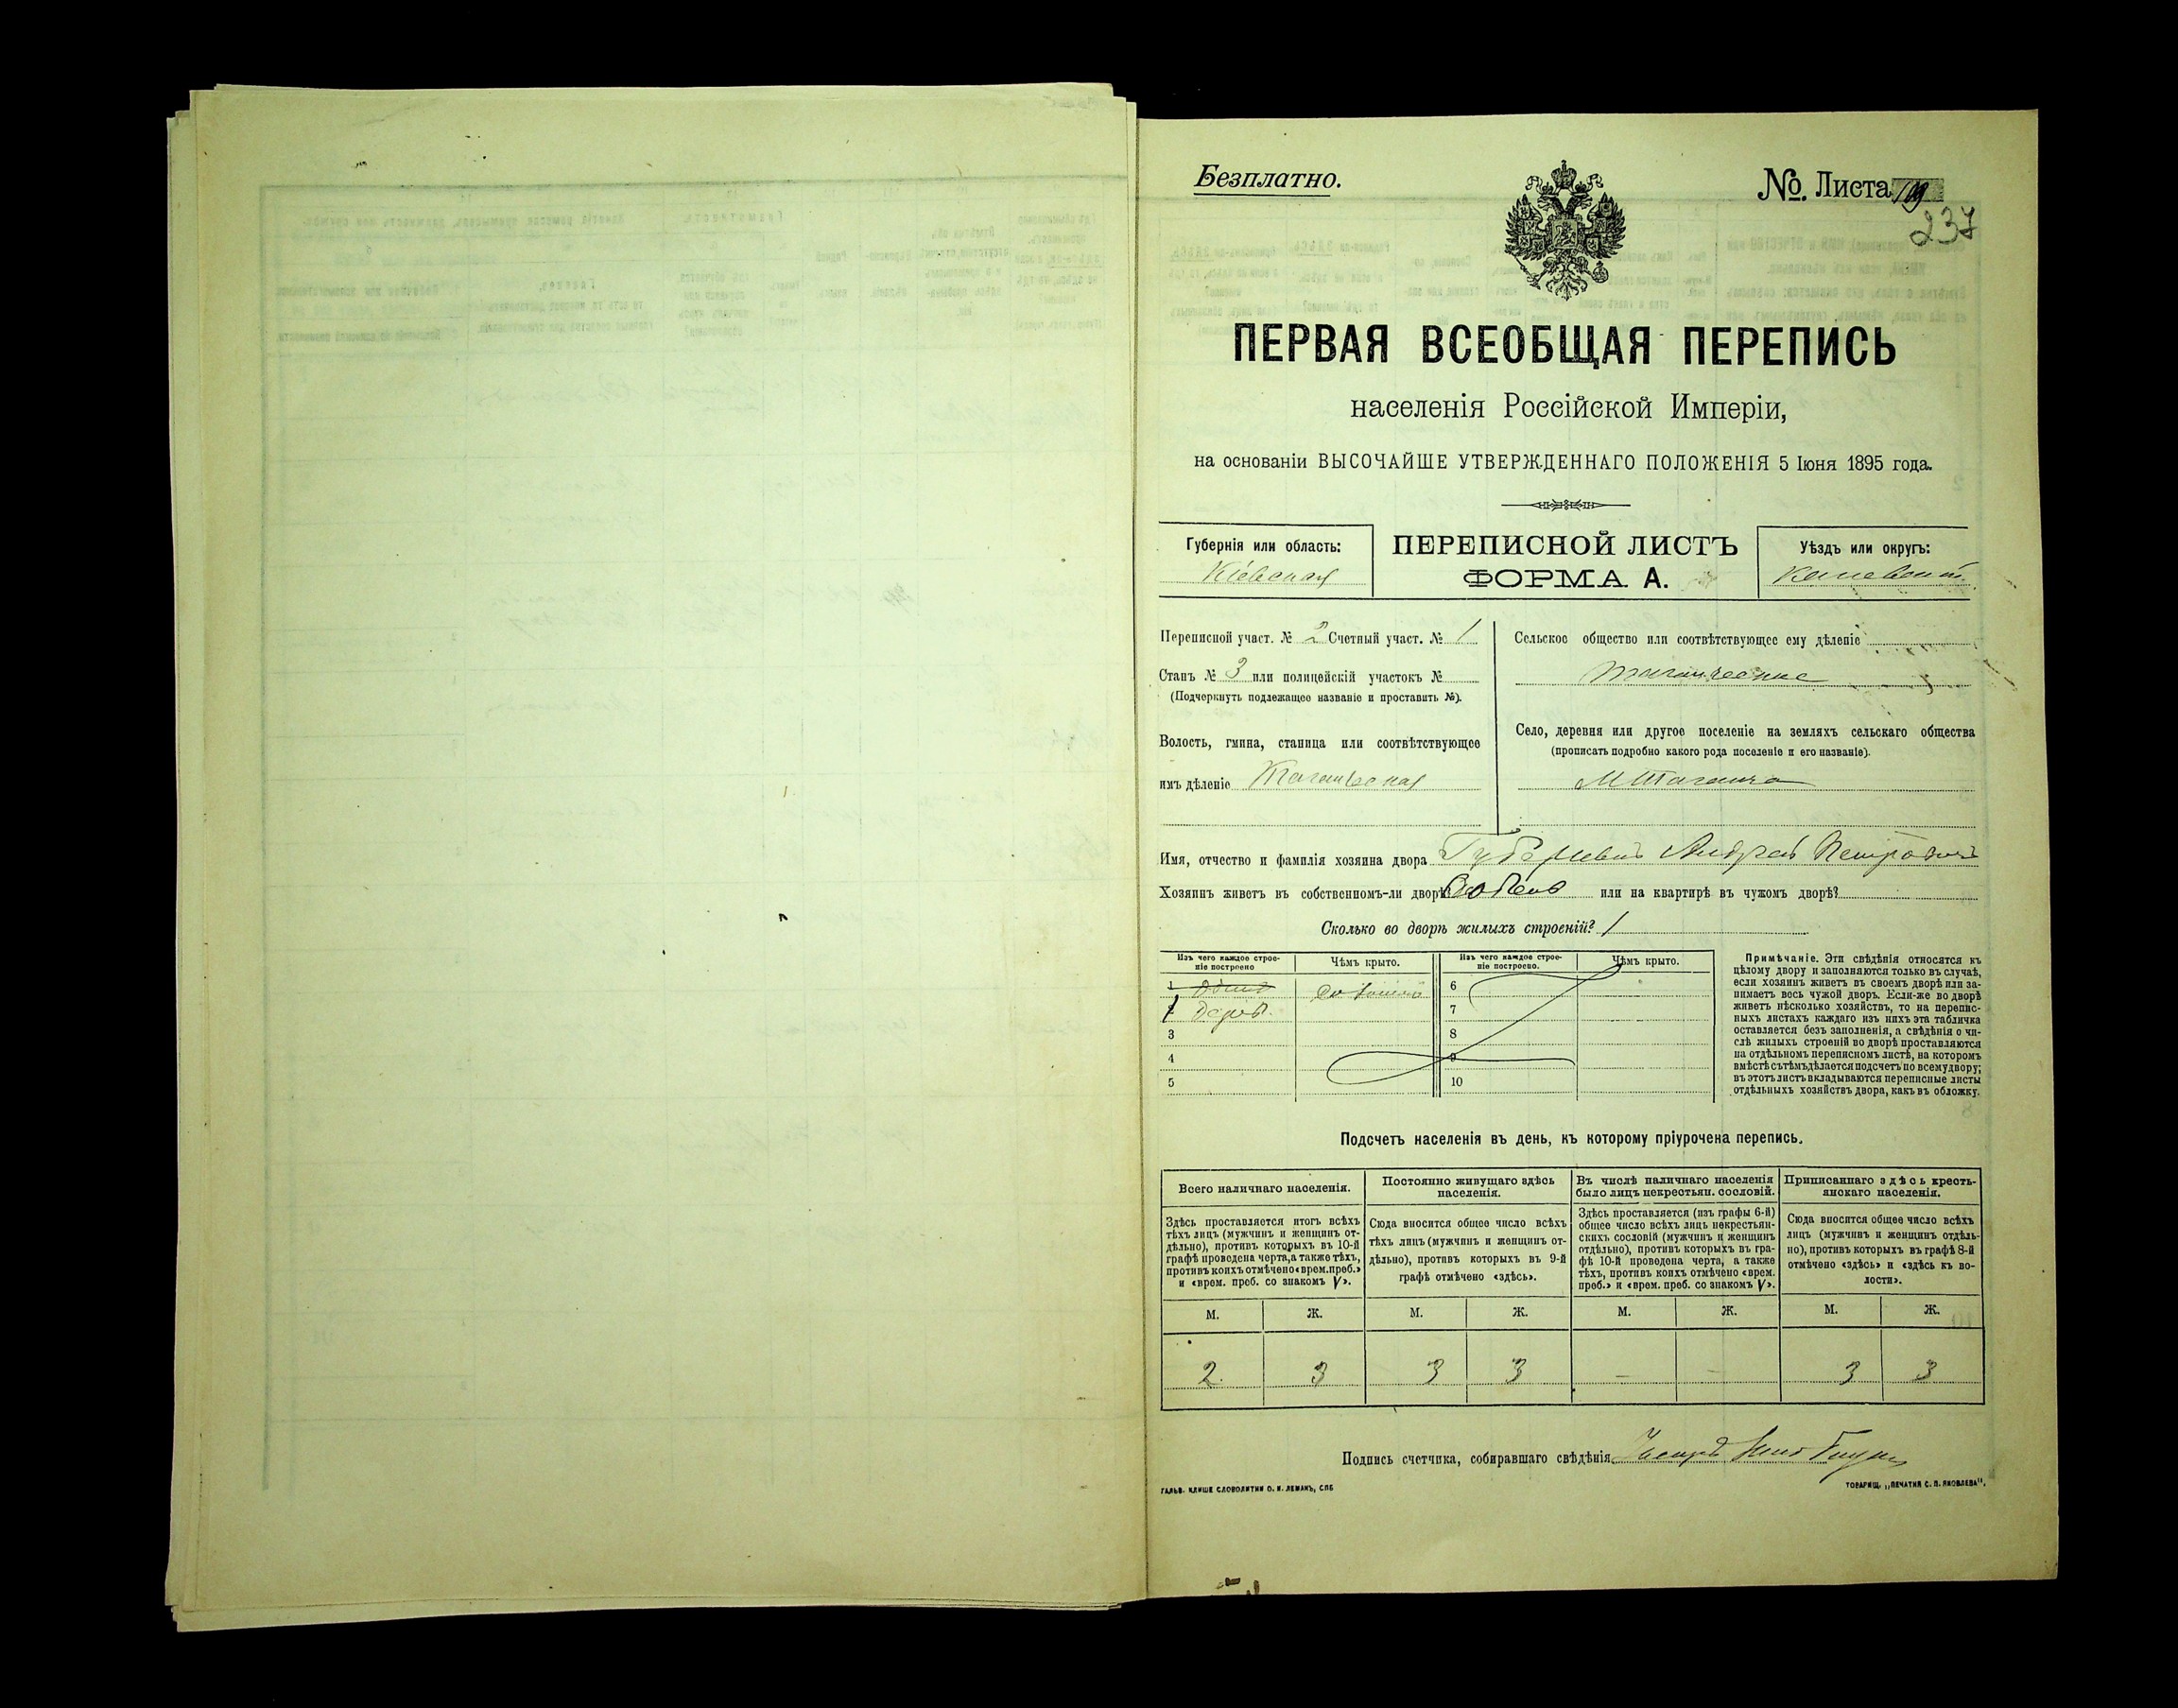 Безплатно.
№. Листа 119
237
ПЕРВАЯ ВСЕОБЩАЯ ПЕРЕПИСЬ
населенія Россійской Имперіи,
на основаніи ВЫСОЧАЙШЕ УТВЕРЖДЕННАГО ПОЛОЖЕНІЯ 5 Іюня 1895 года.
Губернія или область:
Кіевская
ПЕРЕПИСНОЙ ЛИСТЪ
ФОРМА А.
Уѣздъ или округъ:
Каневскій
Переписной участ. № 2 Счетный участ. № 1
Станъ № 3 или полицейскій участокъ №
(Подчеркнуть подлежащее названіе и проставить №).
Волость, гмина, станица или соотвѣтствующее
имъ дѣленіе Таганчская
Сельское общество или соотвѣтствующее ему дѣленіе
Таганчское
Село, деревня или другое поселеніе на земляхъ сельскаго общества
(прописать подробно какого рода поселеніе и его названіе).
М Таганча
Имя, отчество и фамилія хозяина двора Андрей Петровъ
Хозяинъ живетъ въ собственномъ-ли дворѣ? или на квартирѣ въ чужомъ дворѣ?
Сколько во дворѣ жилыхъ строеній? 1
Изъ чего каждое строе-
ніе построено
Чѣмъ крыто.
Изъ чего каждое строе-
ніе построено.
Чѣмъ крыто.
1 соломою 6
2 дерев. 7
3 8
4 9
5 10
Примѣчаніе. Эти свѣдѣнія относятся къ
цѣлому двору и заполняются только въ случаѣ,
если хозяинъ живетъ въ своемъ дворѣ или за-
нимаетъ весь чужой дворъ. Если-же во дворѣ
живетъ нѣсколько хозяйствъ, то на перепис-
ныхъ листахъ каждаго изъ нихъ эта табличка
оставляется безъ заполненія, а свѣдѣнія о чи-
слѣ жилыхъ строеній во дворѣ проставляются
на отдѣльномъ переписномъ листѣ, на которомъ
вмѣстѣ съ тѣмъ дѣлается подсчетъ по всему двору;
въ этотъ листъ вкладываются переписные листы
отдѣльныхъ хозяйствъ двора, какъ въ обложку.
Подсчетъ населенія въ день, къ которому пріурочена перепись.
Всего наличнаго населенія.
Постоянно живущаго здѣсь
населенія.
Въ числѣ наличнаго населенія
было лицъ некрестьян. сословій.
Приписаннаго здѣсь кресть-
янскаго населенія.
Здѣсь проставляется итогъ всѣхъ
тѣхъ лицъ (мужчинъ и женщинъ от-
дѣльно), противъ которыхъ въ 10-й
графѣ проведена черта, а также тѣхъ,
противъ коихъ отмѣчено «врем. преб.»
и «врем. преб. со знакомъ V».
Сюда вносится общее число всѣхъ
тѣхъ лицъ (мужчинъ и женщинъ от-
дѣльно), противъ которыхъ въ 9-й
графѣ отмѣчено «здѣсь».
Здѣсь проставляется (изъ графы 6-й)
общее число всѣхъ лицъ некрестьян-
скихъ сословій (мужчинъ и женщинъ
отдѣльно), противъ которыхъ въ гра-
фѣ 10-й проведена черта, а также
тѣхъ, противъ коихъ отмѣчено «врем.
преб.» и «врем. преб. со знакомъ V».
Сюда вносится общее число всѣхъ
лицъ (мужчинъ и женщинъ отдѣль-
но), противъ которыхъ въ графѣ 8-й
отмѣчено «здѣсь» и «здѣсь къ во-
лости».
М. Ж. М. Ж. М. Ж. М. Ж.
2 3 3 3 — — 3 3
Подпись счетчика, собиравшаго свѣдѣнія
ГАЛЬВ. КЛИШЕ СЛОВОЛИТНИ О. И. ЛЕМАНЪ, СПБ
ТОВАРИЩ. „ПЕЧАТНЯ С. П. ЯКОВЛЕВА".